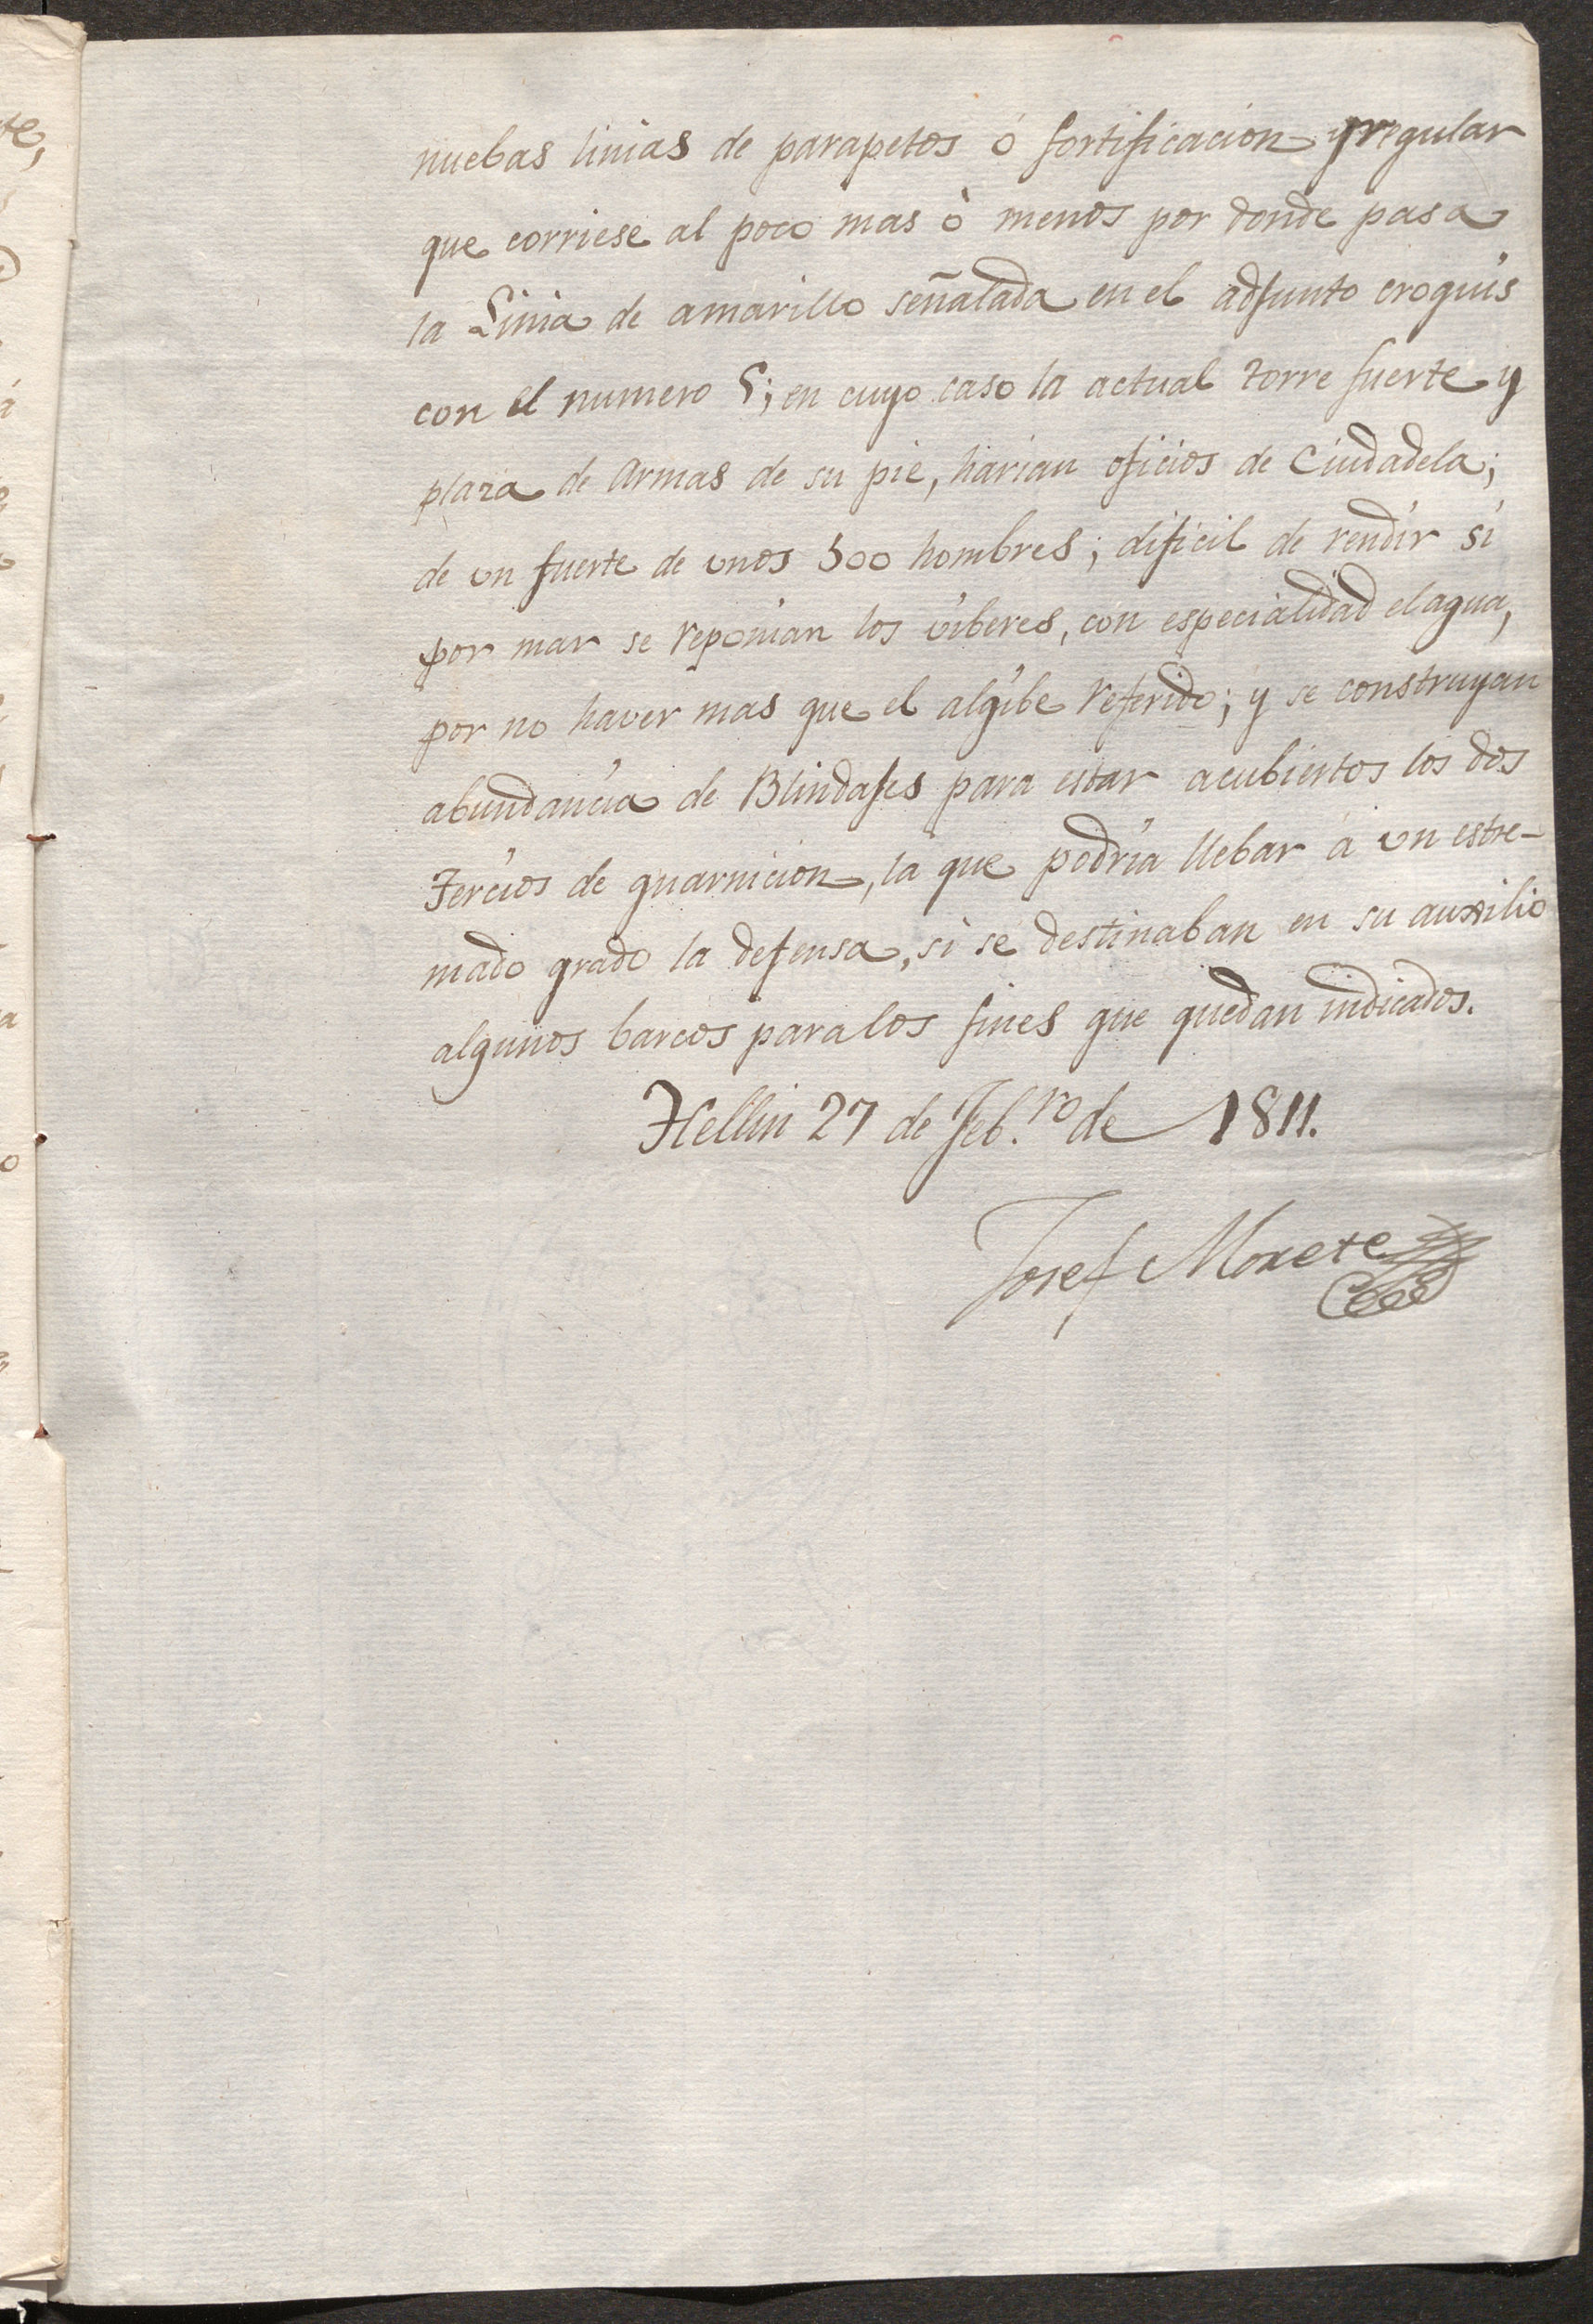 nuebas linias de parapetos ó fortificacion yrregular
que corriese al poco mas ò menos por donde pasa
la Linia de amarillo señalada en el adjunto croquis
con el numero 5; en cuyo caso la actual torre fuerte y
plaza de armas de su pie, harian oficios de Ciudadela;
de un fuerte de unos 500 hombres; dificil de rendir si
por mar se reponian los viberes, con especialidad el agua,
por no haver mas que el algibe referido; y se construyan
abundancia de Blindajes para estar acubiertos los dos
Tercios de guarnicion, la que podria llebar á un estre-
mado grado la defensa, si se destinaban en su auxilio
algunos barcos para los fines que quedan indicados.
Hellin 27 de Feb.ro de 1811.
Josef Morete